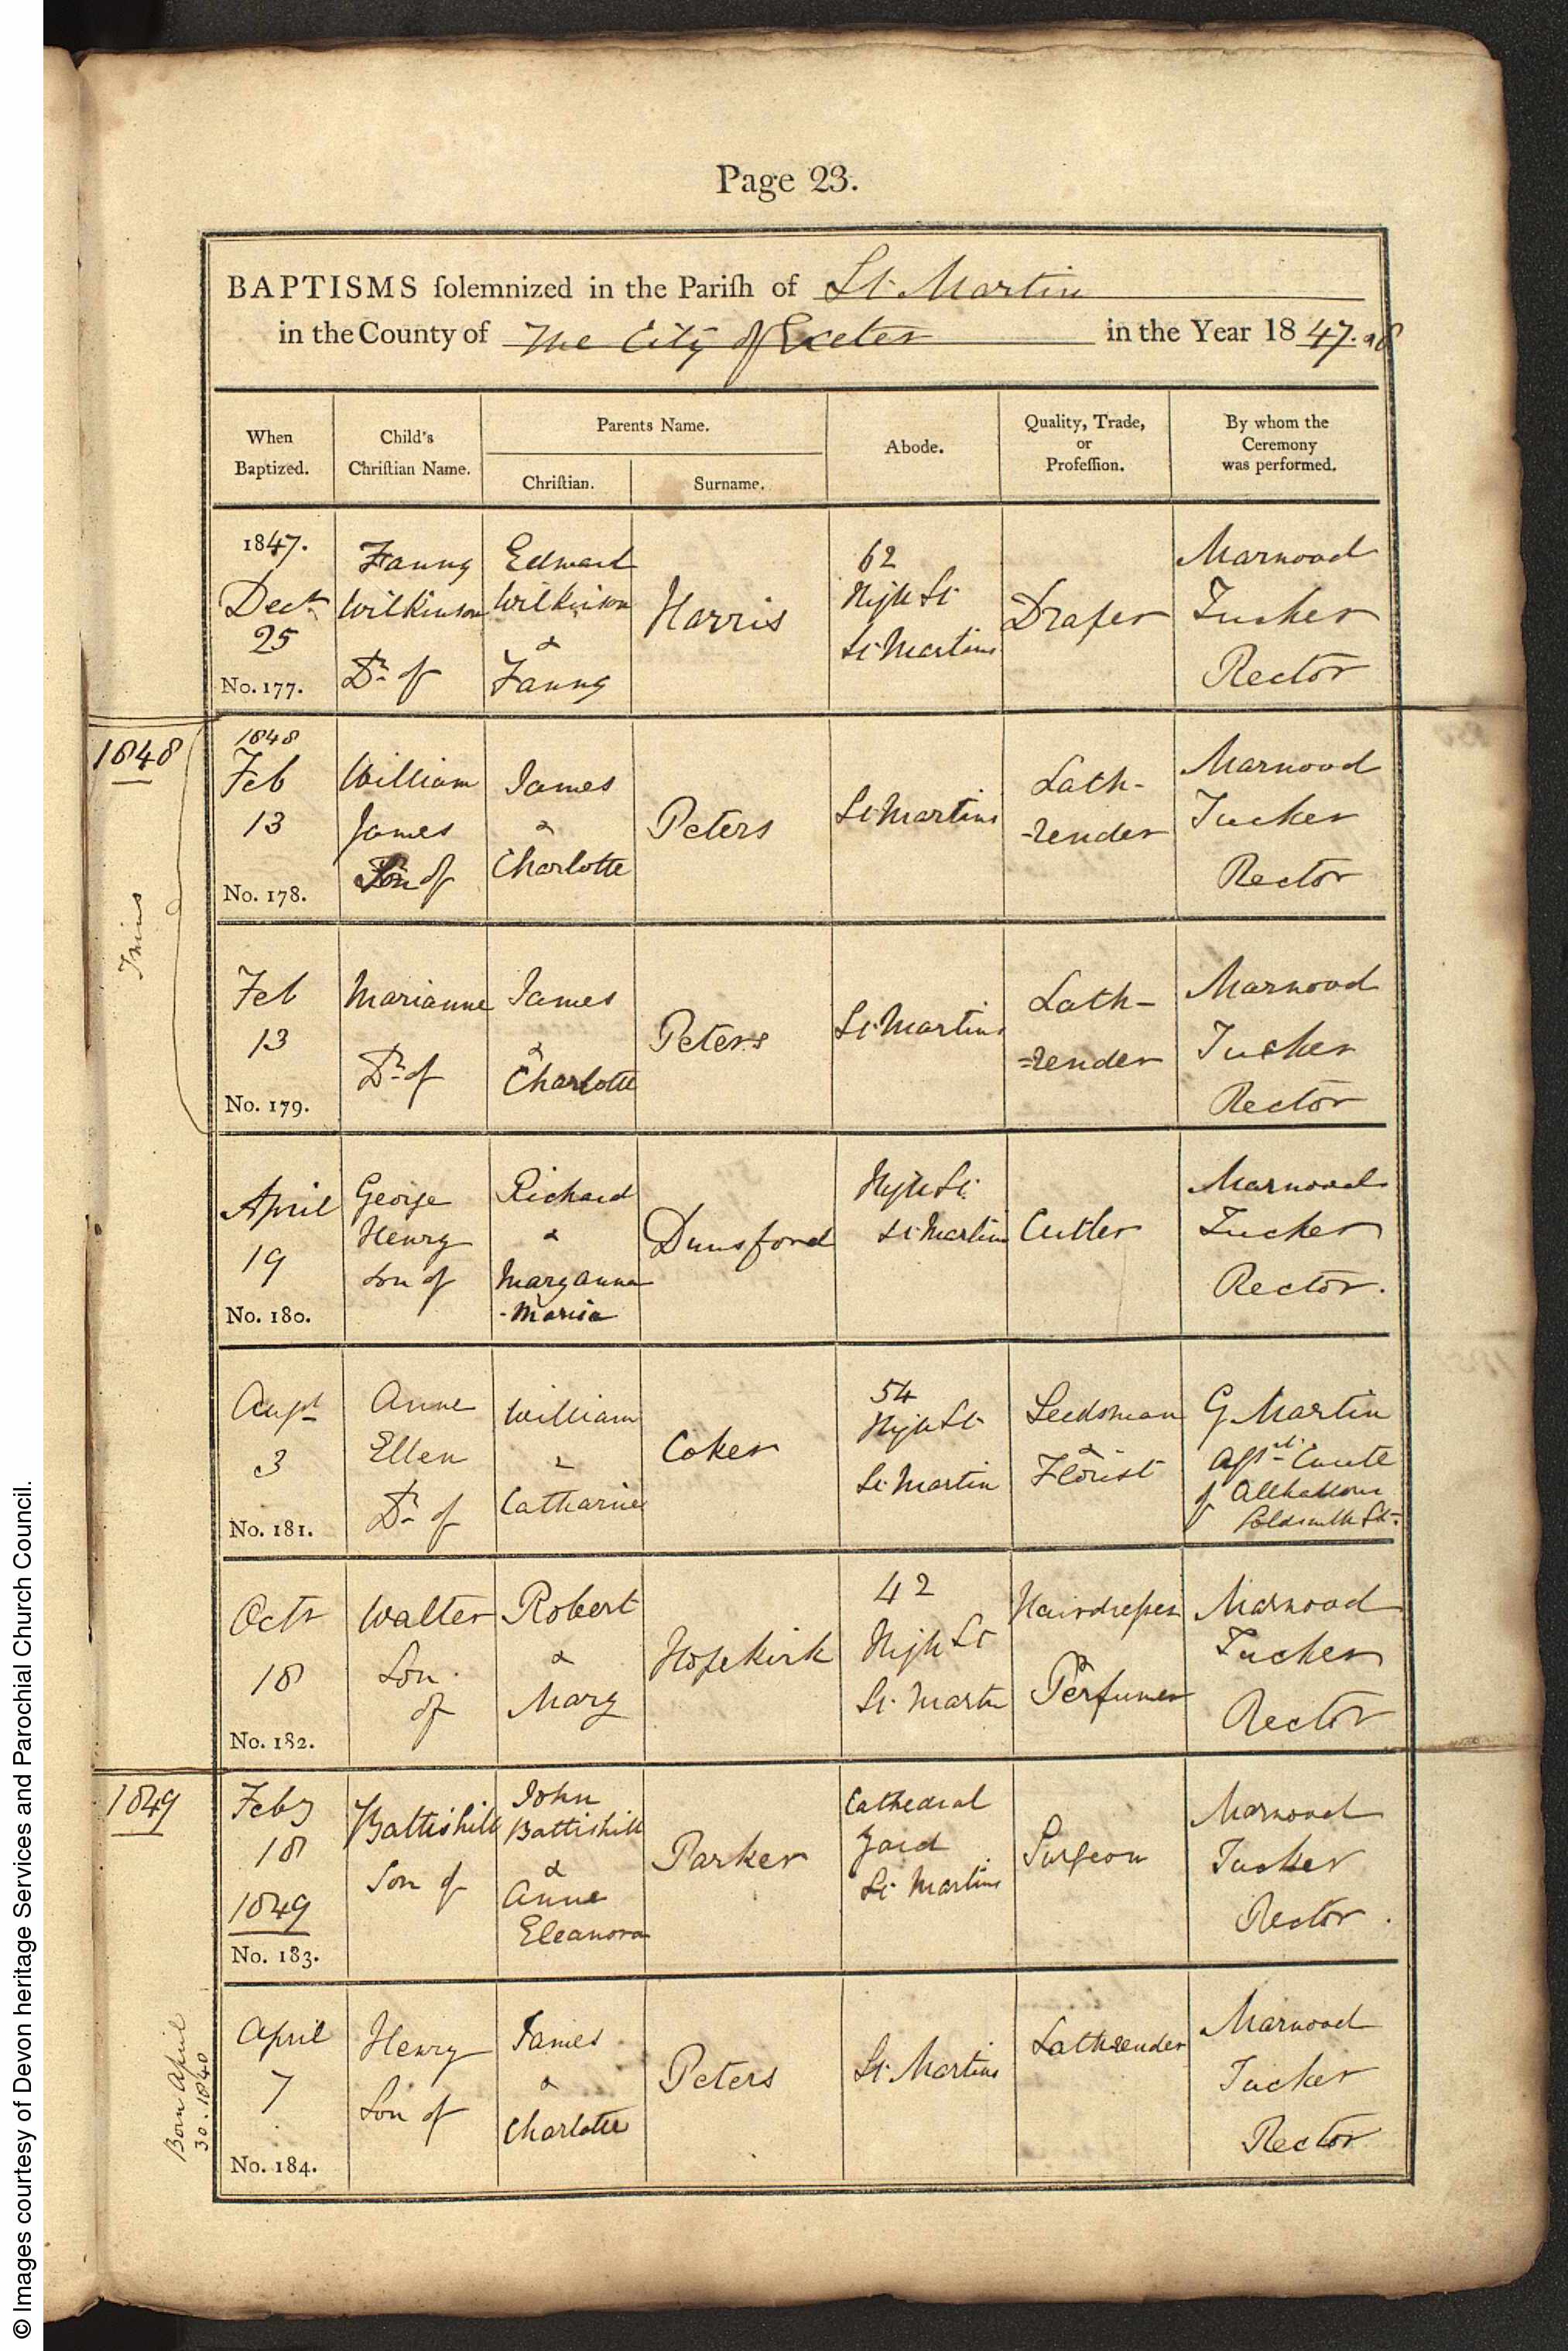 Page 23.
BAPTISMS ſolemnized in the Pariſh of St. Martin
in the County of The City of Exeter in the Year 18 47.48
When Baptized.
Child's Chriſtian Name.
Parents Name.
Chriſtian.
Surname.
Abode.
Quality, Trade, or Profeſſion.
By whom the Ceremony was performed.
1847.
Decr
25
No. 177.
Fanny
Wilkinson
Dr of
Edward
Wilkinson
&
Fanny
Harris
62
High St
St Martins
Draper
Marwood
Tucker
Rector
1848
Twins
1848
Feb
13
No. 178.
William
James
Son of
James
&
Charlotte
Peters
St Martins
Lath-
-render
Marwood
Tucker
Rector
Feb
13
No. 179.
Marianne
Dr of
James
&
Charlotte
Peters
St Martins
Lath-
=render
Marwood
Tucker
Rector
April
19
No. 180.
George
Henry
Son of
Richard
&
Mary anna
-Maria
Dunsford
High St.
St Martin
Cutler
Marwood
Tucker
Rector.
Augst
3
No. 181.
Anne
Ellen
Dr of
William
&
Catharine
Coker
54
High St
St Martin
Seedsman
&
Florist
G Martin
Asst Curate
of Allhallows
Goldsmith St.
Octr
18
No. 182.
Walter
Son
of
Robert
&
Mary
Hopekirk
42
High St
St. Martin
Hairdresser
&
Perfumer
Marwood
Tucker
Rector
1849
Feby
18
1849
No. 183.
Battishill
Son of
John
Battishill
&
Anne
Eleanora
Parker
Cathedral
Yard
St. Martins
Surgeon
Marwood
Tucker
Rector.
Born April
30. 1840
April
7
No. 184.
Henry
Son of
James
&
Charlotte
Peters
St. Martins
Lathrender
Marwood
Tucker
Rector
© Images courtesy of Devon heritage Services and Parochial Church Council.